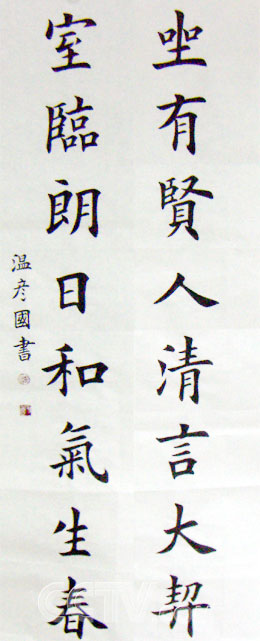 坐有賢人清言大契
室臨朗日和氣生春
温彦國書